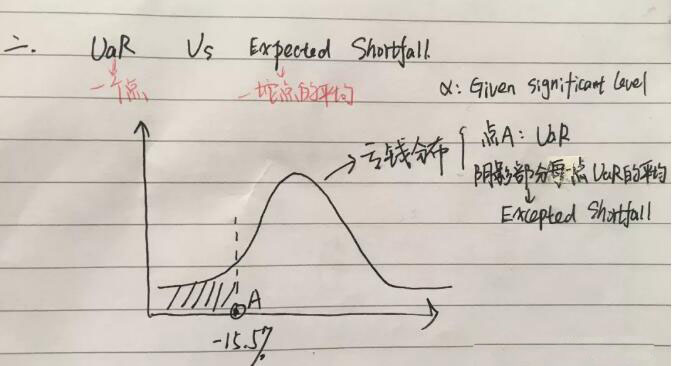 二. VaR Vs Expected Shortfall
一个点 一坨点的平均
α: Given significant level
亏钱分布 点A: VaR
阴影部分每一点 VaR的平均
Excepted Shortfall
A
-15.5%